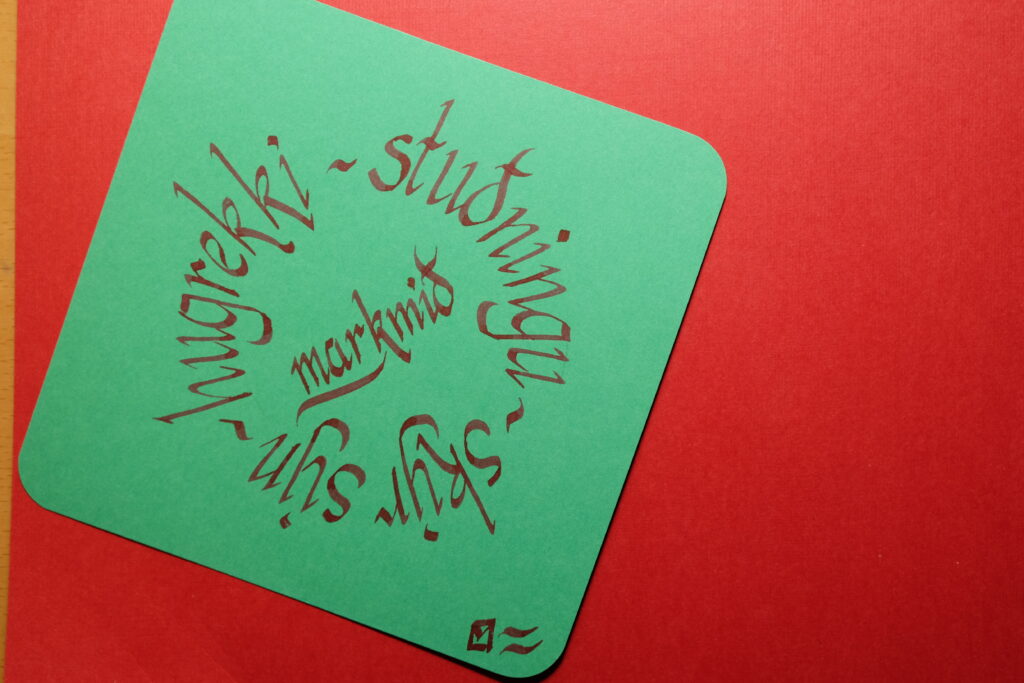 hugrekki ~ stuðningu ~ skýr sýn ~
markmið